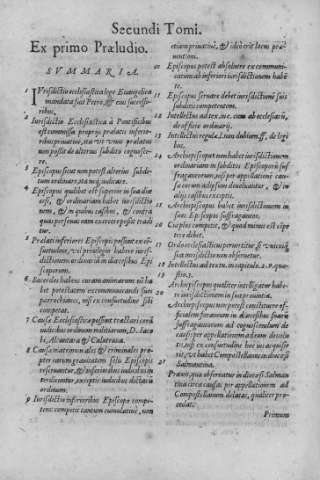 Secundi Tomi.
Ex primo Præludio.
SVMMARIA.
1 Iurisdictio ecclesiastica lege Euangelica
mandata fuit Petro, & eius successo-
ribus.
2 Iurisdictio Ecclesiastica à Pontificibus
est commissa propriis prælatis inferio-
ribus priuatiuè, ita vt vnus prælatus
non possit de alterius subditis cognosce-
re.
3 Episcopus sicut non potest alterius subdi-
tum ordinare, ita neq; iudicare.
4 Episcopus quilibet est superior in sua diœ-
cesi, & ordinariam habet iurisdictio-
nem, & in quibus casibus, & contra
quas personas eam exercere possit tradi-
tur.
5 Prælati inferiores Episcopi possunt ex con-
suetudine, vel priuilegio habere iuris-
dictionem ordinariam in diœcesibus Epi-
scoporum.
6 Sacerdos habens curam animarum nō ha-
bet potestatem excommunicandi suos
parrochianos, nisi ex consuetudine sibi
competat.
7 Causa Ecclesiastica possunt tractari corā
iudicibus ordinum militarium, D. Iaco-
bi, Alcantara & Calatraua.
8 Causæ matrimoniales & criminales pro-
pter earum grauitatem solis Episcopis
reseruantur, & inferioribus iudicibus in-
terdicuntur, exceptis iudicibus dictarū
ordinum.
9 Iurisdictio inferioribus Episcopo compe-
tens competit tantum cumulatiuè, non
etiam priuatiuè, & ideò erit locus præ-
uentioni.
10 Episcopus potest absoluere excommuni-
catum ab inferiori iurisdictionem habē-
te.
11 Episcopus seruare debet iurisdictionē suis
subditis competentem.
12 Intellectus ad tex. in c. cum ab ecclesiarū,
de officio ordinarij.
13 Intellectus regulæ. 1. ff. de legi-
bus.
14 Archiepiscopus non habet iurisdictionem
ordinariam in subditos Episcoporū suf-
fraganeorum, nisi per appellationē cau-
sa coram eo fuerit deuoluatur, & in
aliis casibus exceptis.
15 Archiepiscopus habet iurisdictionem in
suos Episcopos suffraganeos.
16 Cui plus competit, & quod minus est cō-
petere debet.
17 Ordo ecclesiasticus peruertitur, si vnicuiq;
sua iurisdictio non obseruetur.
18 Intellectus ad textum in capitulo. 1. 9. quæ-
stio. 3.
19 Archiepiscopus qualiter intelligatur habe-
re iurisdictionem in sua prouincia.
20 Archiepiscopus non potest constituere of-
ficialem foraneum in diœcesibus suorū
suffraganeorum ad cognoscendum de
causis per appellationem ad eum deuolu-
tis, nisi ex consuetudine hoc ius acquisie-
rit, vt habet Compostellanus in diœcesi
Salmantina.
21 Praxis, quæ obseruatur in diœcesi Salman-
tina circa causas per appellationem ad
Compostellanum delatas, qualiter pro-
cedat.
Primum